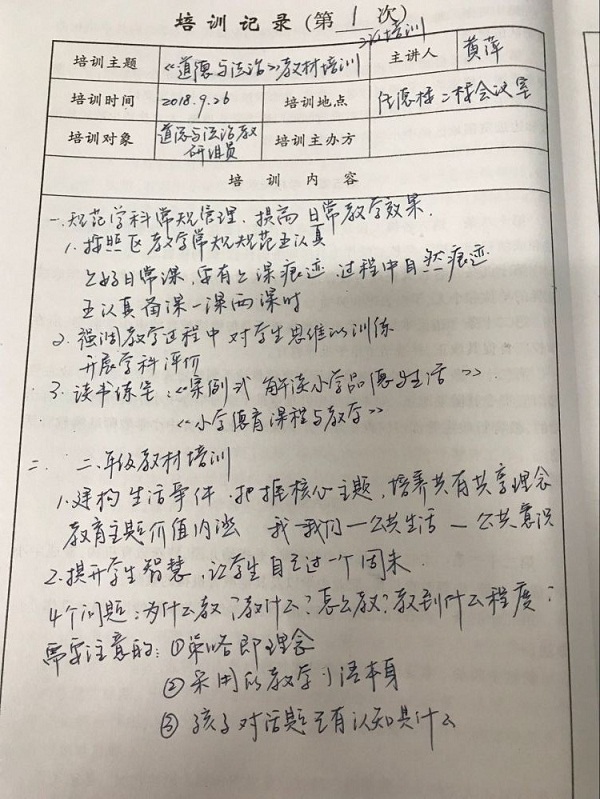 培训记录(第 1 次)
培训主题 《道德与法治》教材培训 主讲人 黄萍
培训时间 2018.9.26 培训地点 二楼会议室
培训对象 道德与法治教研组员 培训主办方
培训内容
一.规范学科常规管理,提高日常教学效果.
1.按照区教学常规规范且认真
上好日常课,要有上课痕迹,过程中自然痕迹
且认真备课一课两课时
2.强调教学过程中对学生思维的训练
开展学科评价
3.读书练笔:《案例式解读小学品德与生活》
《小学德育课程与教学》
二 二年级教材培训
1.建构生活事件,把握核心主题,培养共有共享理念
教育主题价值内涵 我—我们—公共生活—公共意识
2.提升学生智慧,让学生自己过一个周末.
4个问题:为什么教?教什么?怎么教?教到什么程度?
需要注意的:①策略即理念
②采用的教学 本身
③孩子对话题已有认知是什么